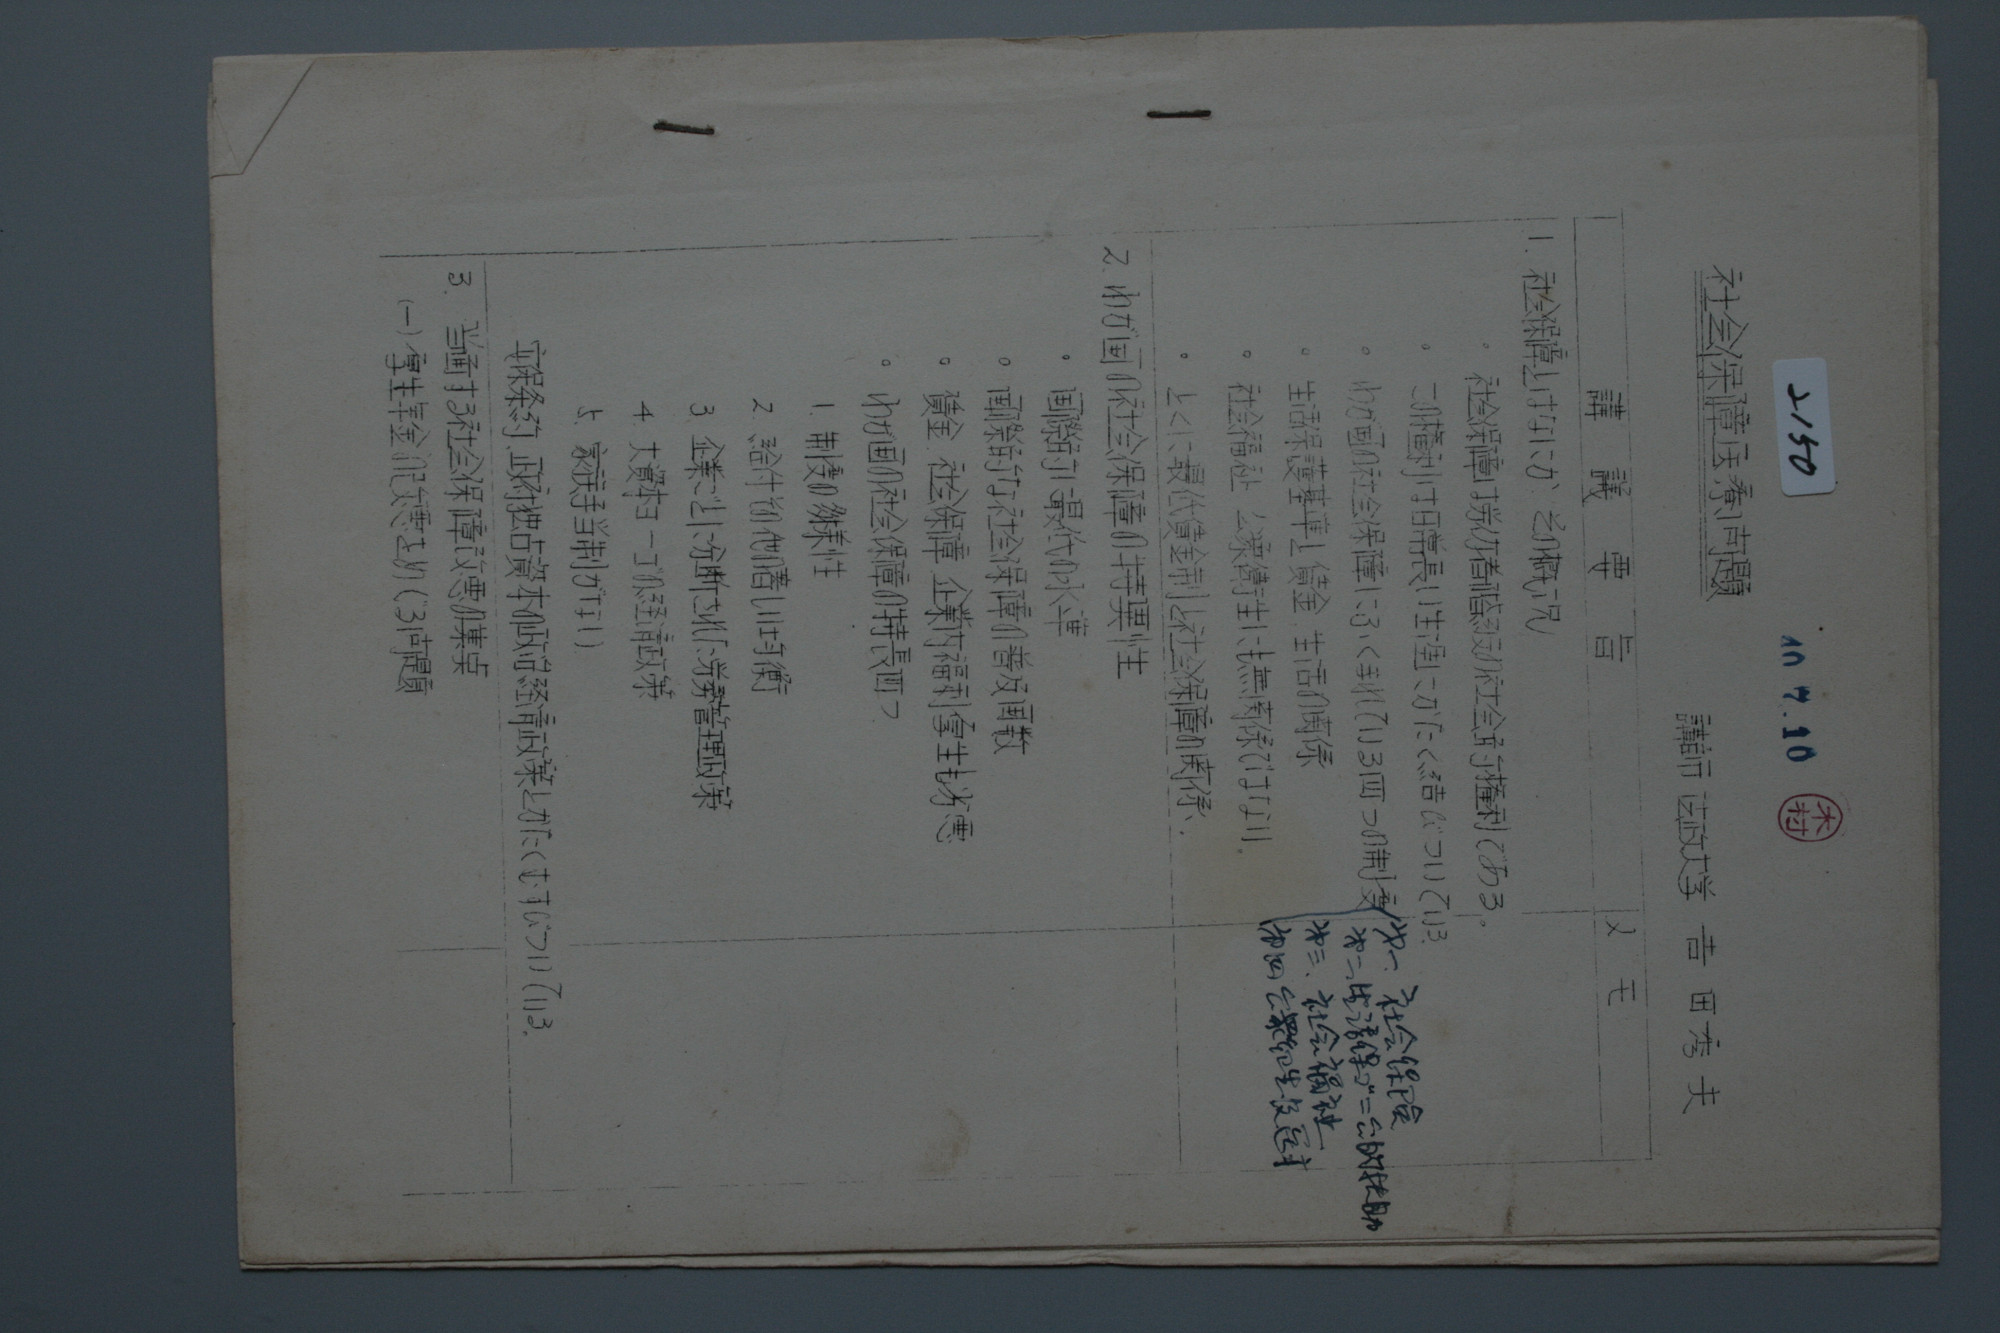 2150
40.7.10
木村
社会保障医療問題
講師 法政大学 吉田秀夫
講議要旨
メモ
1. 社会保障とはなにか、その概況
。社会保障は労仂者階級の社会的権利である。
。この権利は日常長い生涯にかたく結びついている
。わが国の社会保障にふくまれている四つの制度
第一、社会保険
第二、生活保ゴ=公的扶助
第三、社会福祉
第四 公衆衛生
。生活保護基準と賃金 生活の関係
。社会福祉 公衆衛生にも無関係ではない。
。とくに最低賃金制と社会保障の関係.
2. わが国の社会保障の特異性
。国際的に最低の水準
。国際的な社会保障の普及国数
。賃金 社会保障 企業内福利厚生も劣悪
。わが国の社会保障の特長四つ
1. 制度の
2. 給付その他著しい均衡
3. 企業ごとに分断された労務管理政策
4. 大資本ヨーゴの経済政策
5. 家族手当制がない
安保条約、政府独占資本の政治経済政策とかたくむすびついている.
3. 当面する社会保障改悪の焦点
(一) 厚生年金改悪をめぐる問題